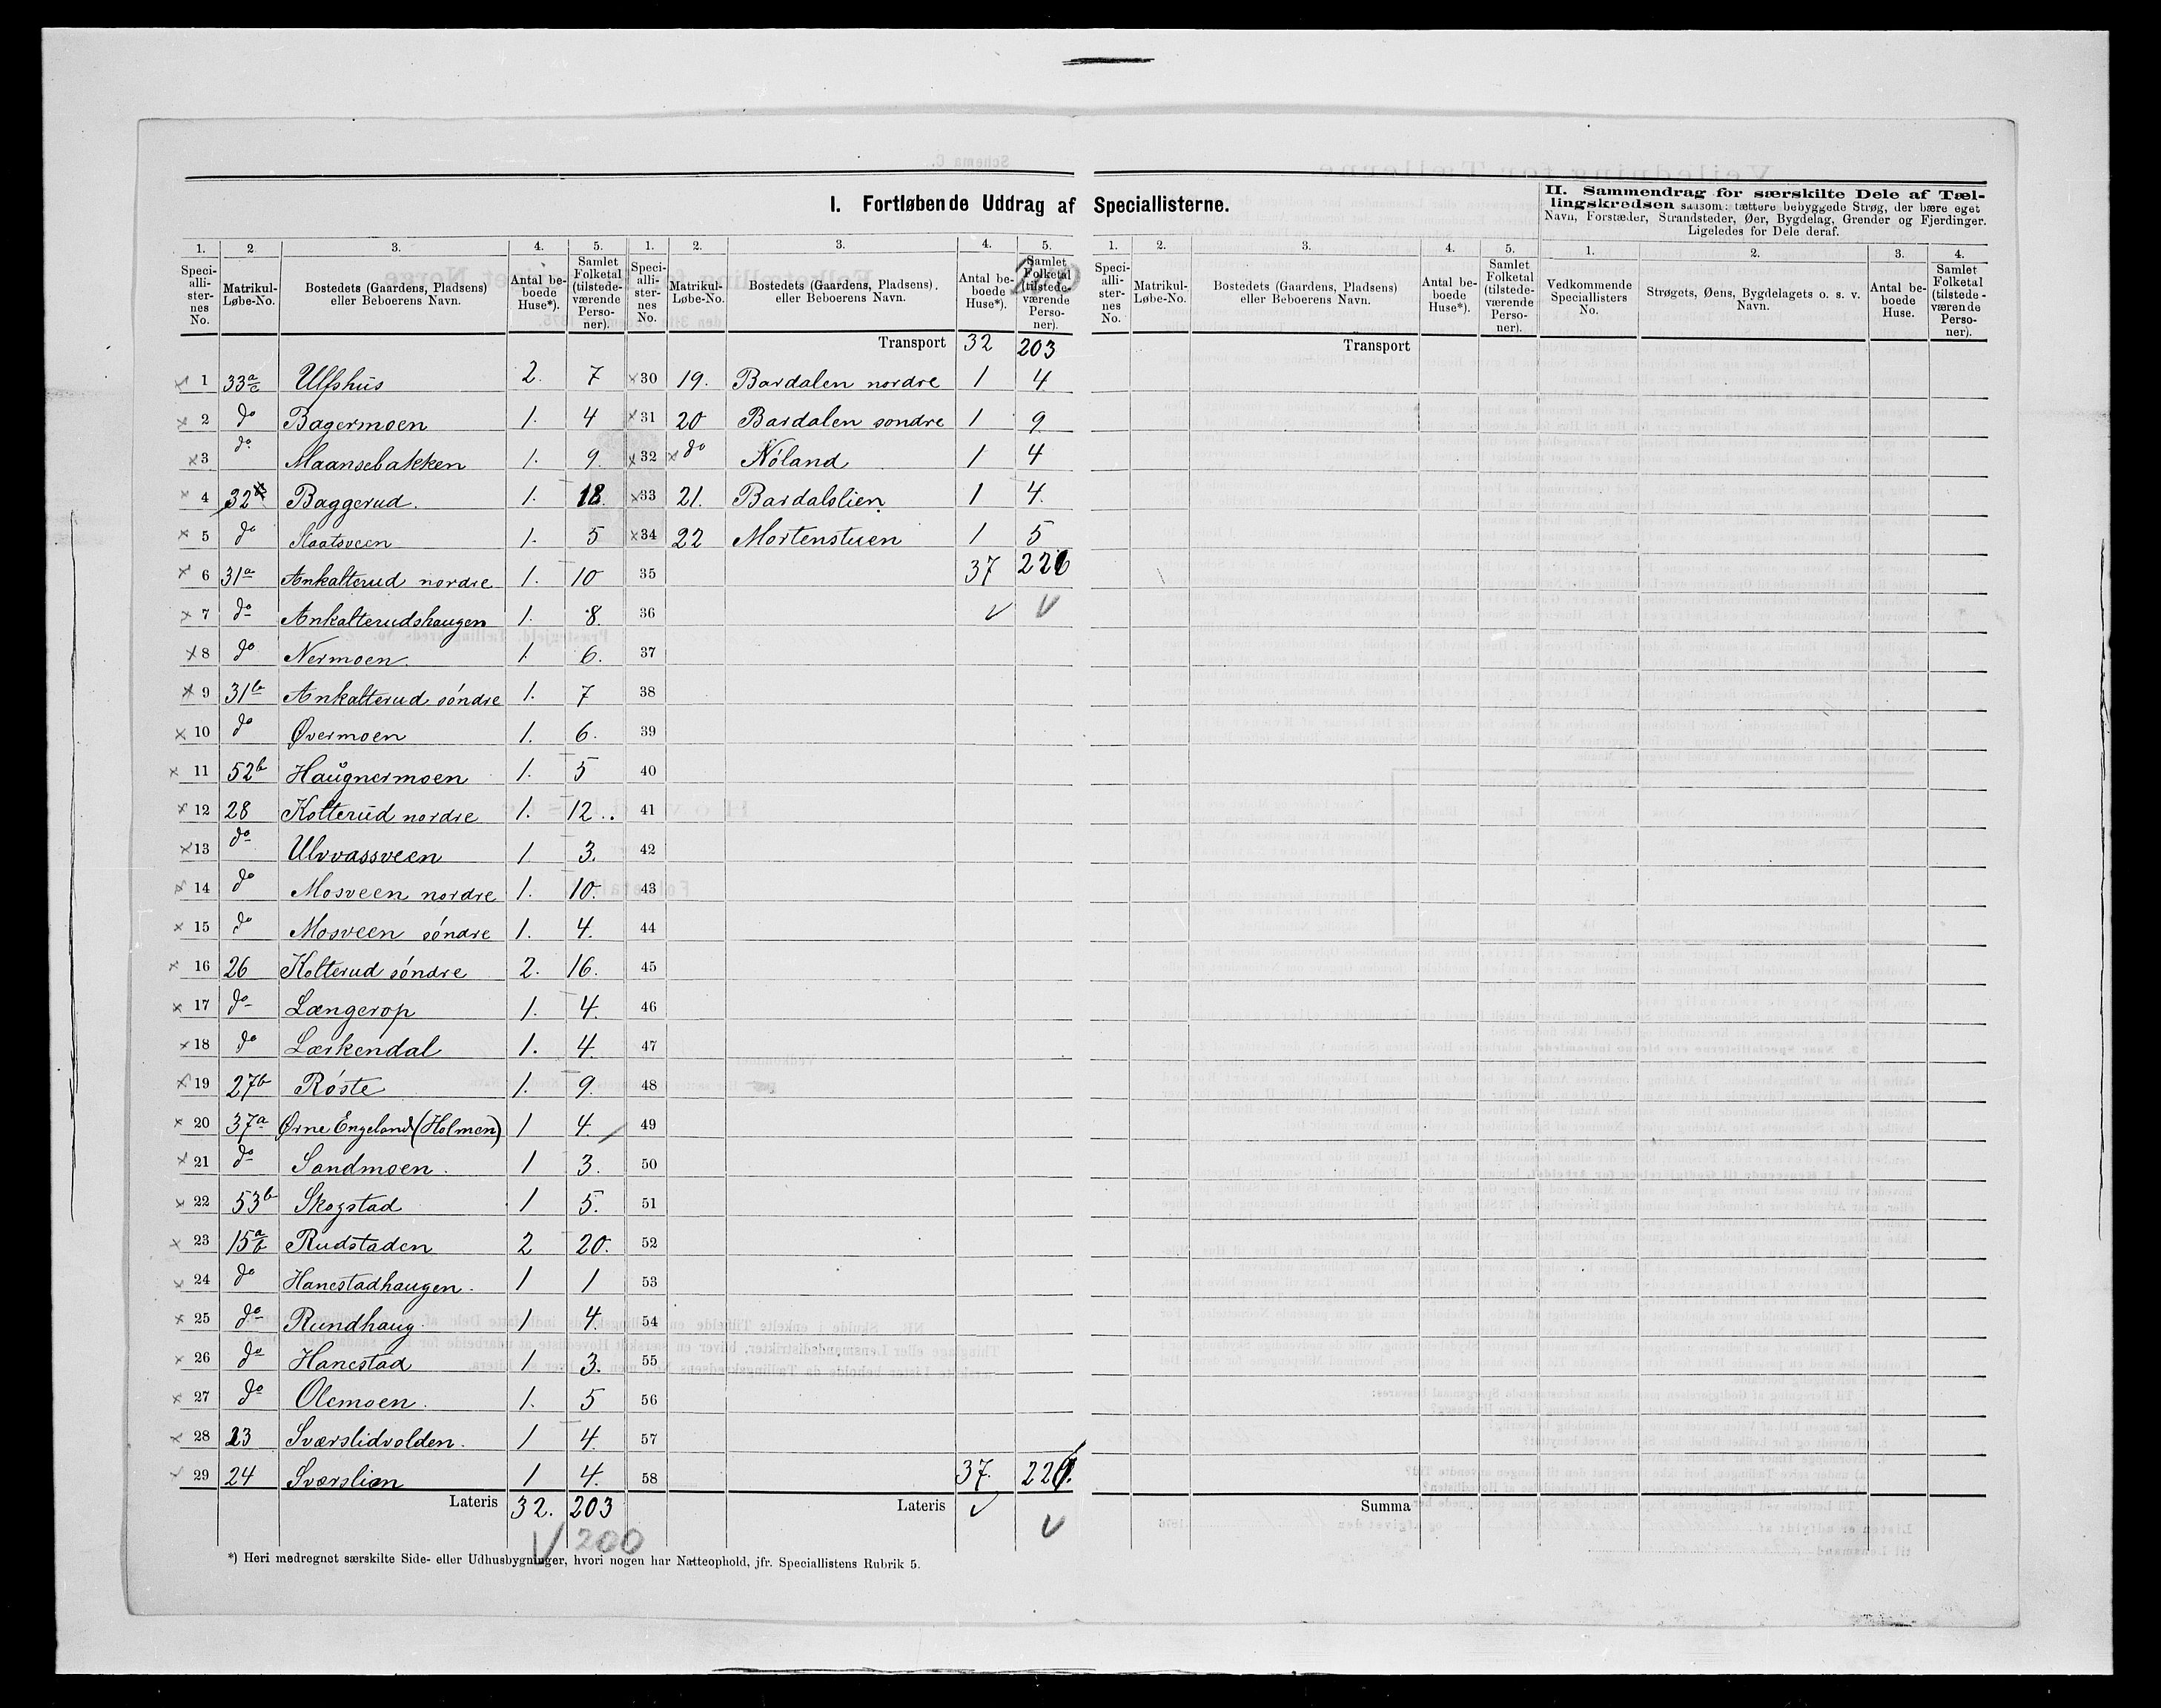 I. Fortløbende Uddrag af Speciallisterne.
II. Sammendrag for særskilte Dele af Tæl-
lingskredsen saasom: tættere bebyggede Strøg, der bære eget
Navn, Forstæder, Strandsteder, Øer, Bygdelag, Grender og Fjerdinger.
Ligeledes for Dele deraf.
1. 2 3. 4. 5. 1. 2. 3. 4. 5. 1. 2. 3. 4. 5. 1. 2. 3. 4.
Speci-alli-ster-nes No. Matrikul-Løbe-No. Bostedets (Gaardens, Pladsens) eller Beboerens Navn. Antal be-boede Huse*). Samlet Folketal (tilstede-værende Perso-ner).
Speci-alli-ster-nes No. Matrikul-Løbe-No. Bostedets (Gaardens, Pladsens). eller Beboerens Navn. Antal be-boede Huse*). Samlet Folketal (tilstede-værende Perso-ner).
Speci-alli-ster-nes No. Matrikul-Løbe-No. Bostedets (Gaardens, Pladsens) eller Beboerens Navn. Antal be-boede Huse*). Samlet Folketal (tilstede-værende Perso-ner).
Vedkommende Speciallisters No. Strøgets, Øens, Bygdelagets o. s. v. Navn. Antal be-boede Huse. Samlet Folketal (tilstede-værende Perso-ner).
Transport 32 203 Transport
1 33 a/c Ulfshus 2. 7 30 19. Bardalen nordre 1 4
2 do Bagermoen 1. 4 31 20 Bardalen søndre 1 9
3 do Maansebakken 1. 9. 32 do Nóland 1 4
4 32 Baggerud. 1. 18. 33 21. Bardalslien 1 4.
5 do Staatsveen 1. 5 34 22 Mortenstuen 1 5
6 31a Ankalterud nordre 1. 10 35 37 226
7 do Ankalterudshaugen 1. 8. 36 ✓ ✓
8 do Nermoen. 1 6. 37
9 31b Ankalterud søndre 1. 7 38
10 do Øvermoen 1. 6. 39
11 52b Haugnermoen 1. 5 40
12 28 Kolterud nordre 1. 12.. 41
13 do Ulvvassveen 1. 3. 42
14 do Mosveen nordre 1. 10. 43
15 do Mosveen søndre 1. 4. 44
16 26 Kolterud søndre 2. 16. 45
17 do Længerop 1. 4. 46
18 do Lærkendal 1. 4. 47
19 27b Røste 1. 9. 48
20 37a Ørne Engeland (Holmen) 1 4. 49
21 do Sandmoen. 1 3. 50
22 53b Skogstad 1 5. 51
23 15 a/b Rudstaden 2 20. 52
24 do Hanestadhaugen. 1 1 53
25 do Rundhaug. 1 4. 54
26 do Hanestad 1 3. 55
27 do Olemoen. 1. 5 56
28 23 Sværslidvolden. 1 4. 57
29 24 Sværslien 1 4. 58 37. 226.
Lateris 32. 203 Lateris ✓ Summa
✓ 200 ✓
*) Heri medregnet særskilte Side- eller Udhusbygninger, hvori nogen har Natteophold, jfr. Speciallistens Rubrik 5.